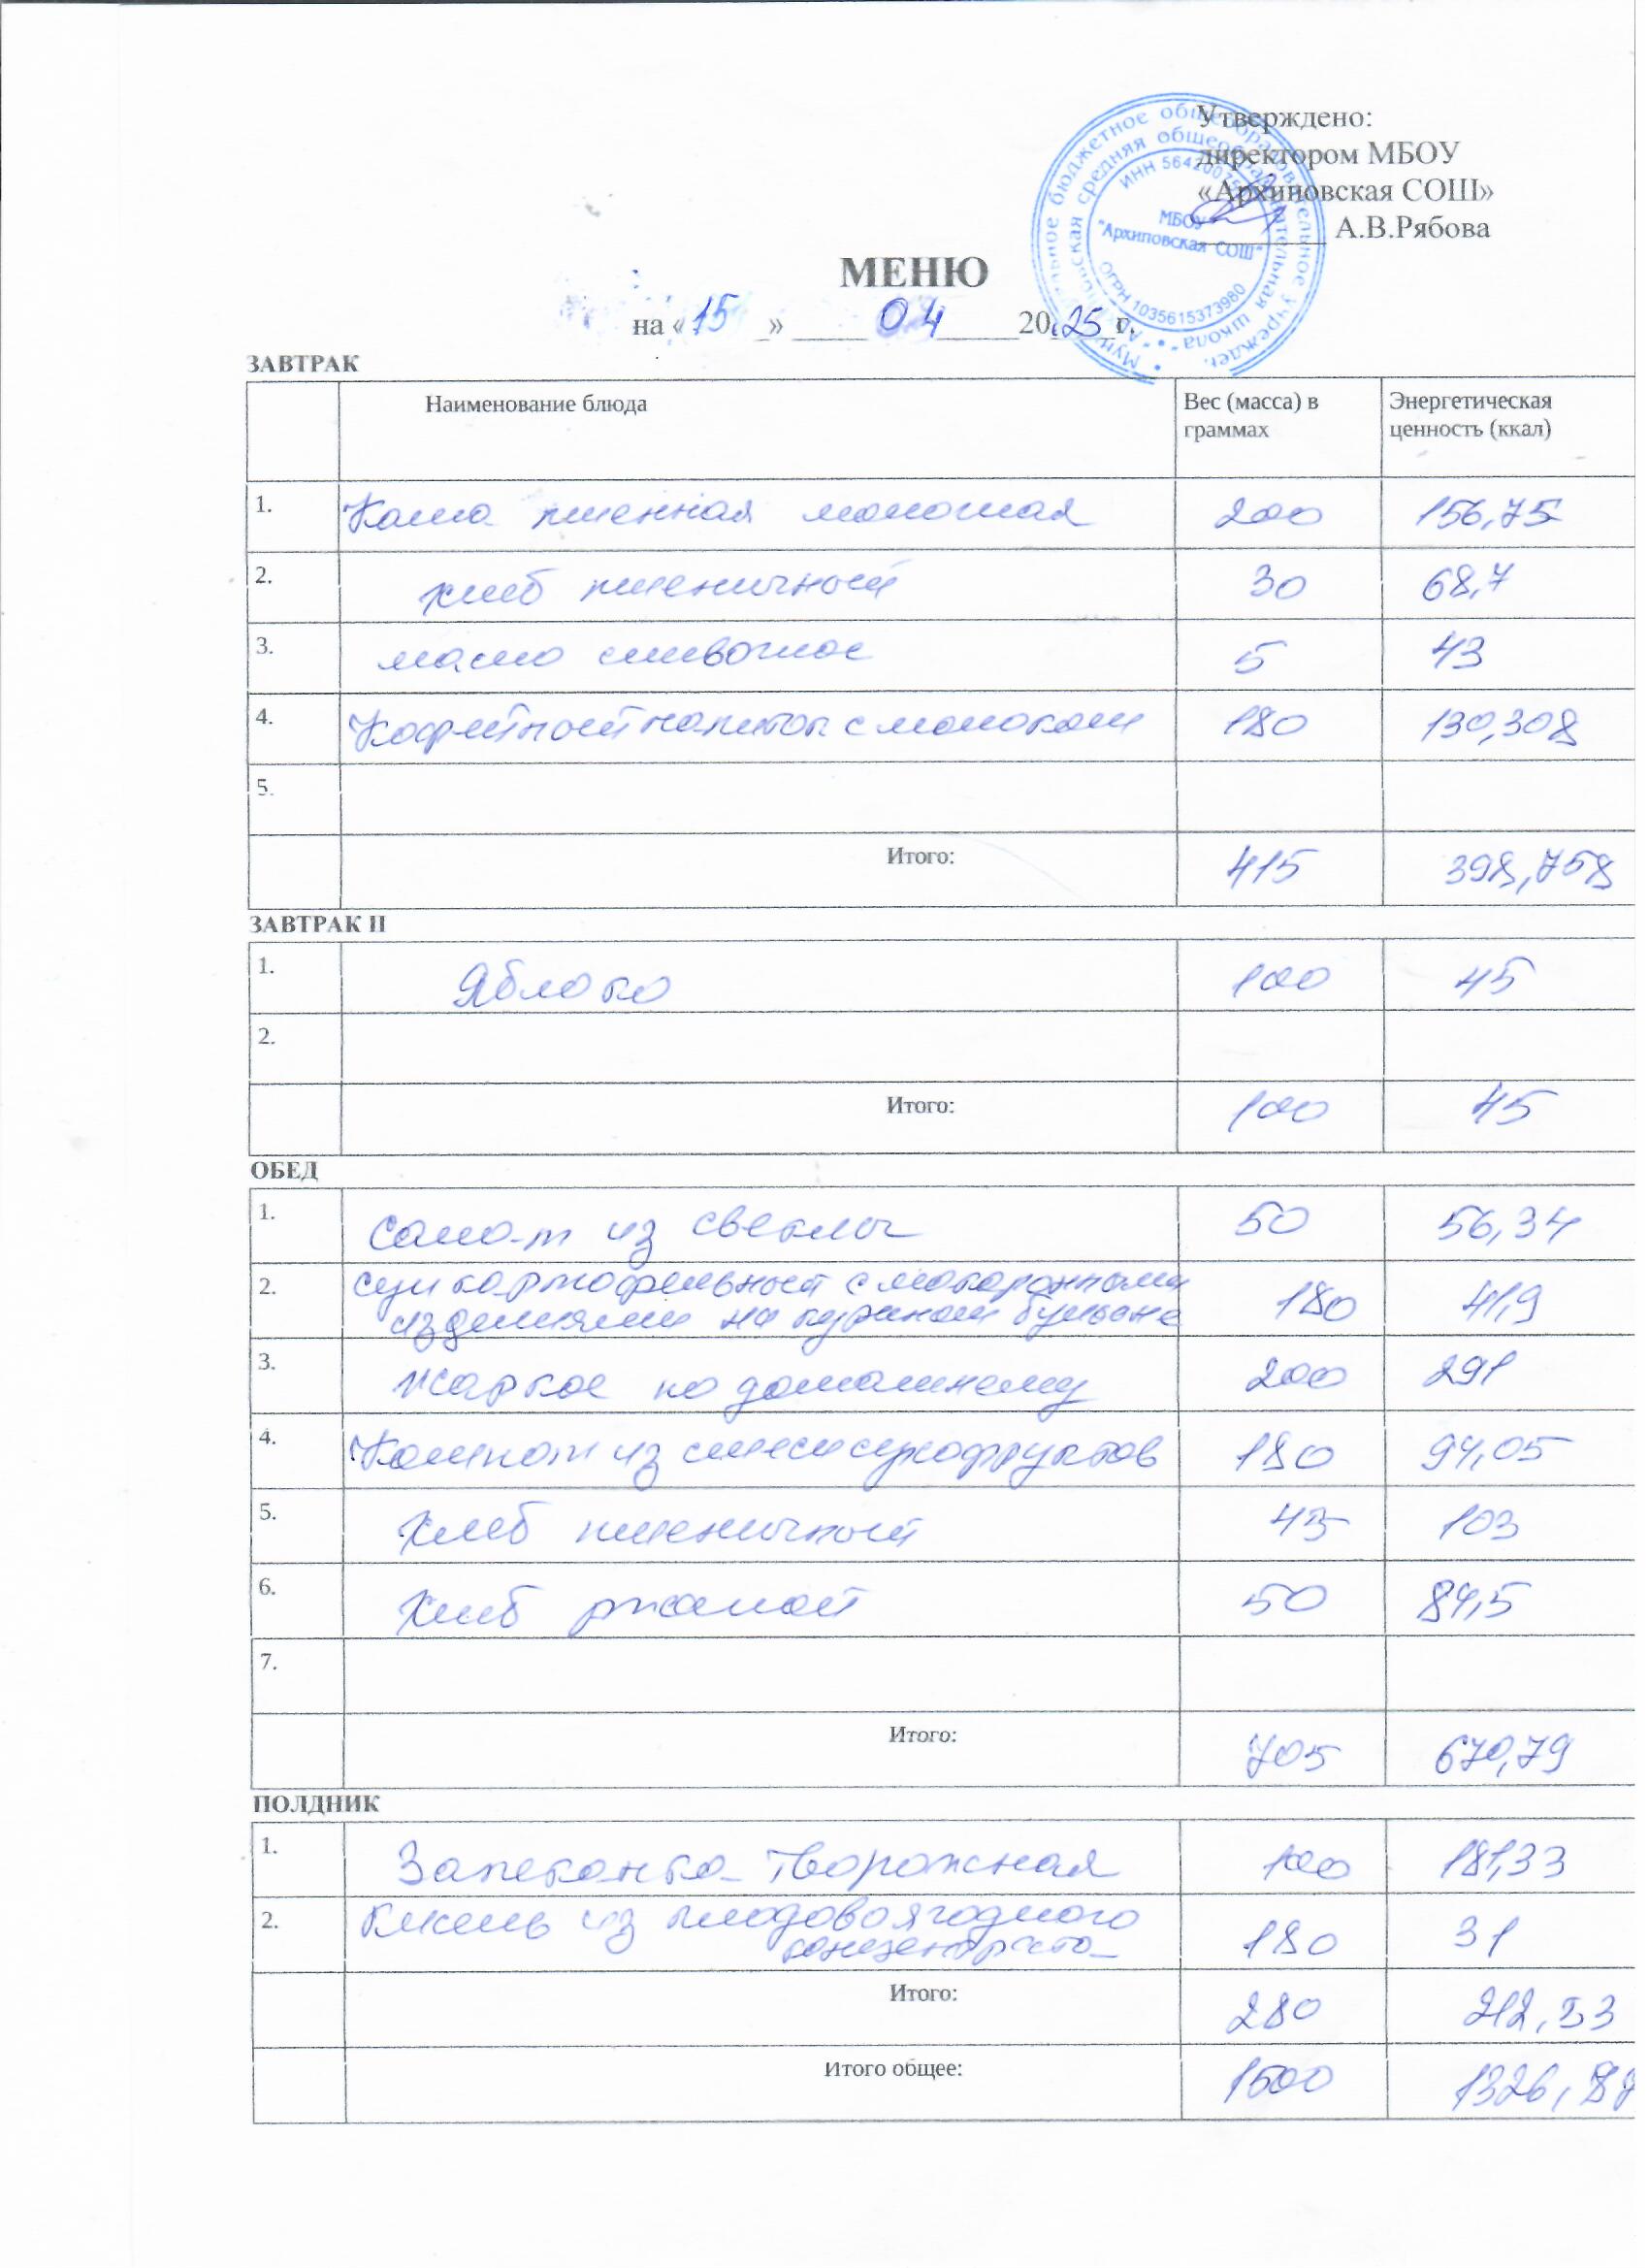 Утверждено:
директором МБОУ
«Архиповская СОШ»
А.В.Рябова
МБОУ
"Архиповская СОШ"
ОГРН 1035615373980
МЕНЮ
на «15» 04 2025 г.
ЗАВТРАК
Наименование блюда Вес (масса) в граммах Энергетическая ценность (ккал)
1. Каша пшенная молочная 200 156,75
2. хлеб пшеничный 30 68,7
3. масло сливочное 5 43
4. Кофейный напиток с молоком 180 130,308
5.
Итого: 415 398,758
ЗАВТРАК II
1. Яблоко 100 45
2.
Итого: 100 45
ОБЕД
1. Салат из свеклы 50 56,34
2. Суп картофельный с макаронными
изделиями на курином бульоне 180 41,9
3. Жаркое по домашнему 200 291
4. Компот из смеси сухофруктов 180 94,05
5. Хлеб пшеничный 45 103
6. Хлеб ржаной 50 84,5
7.
Итого: 705 670,79
ПОЛДНИК
1. Запеканка творожная 100 181,33
2. Кисель из плодовоягодного
концентрата 180 31
Итого: 280 212,33
Итого общее: 1500 1326,